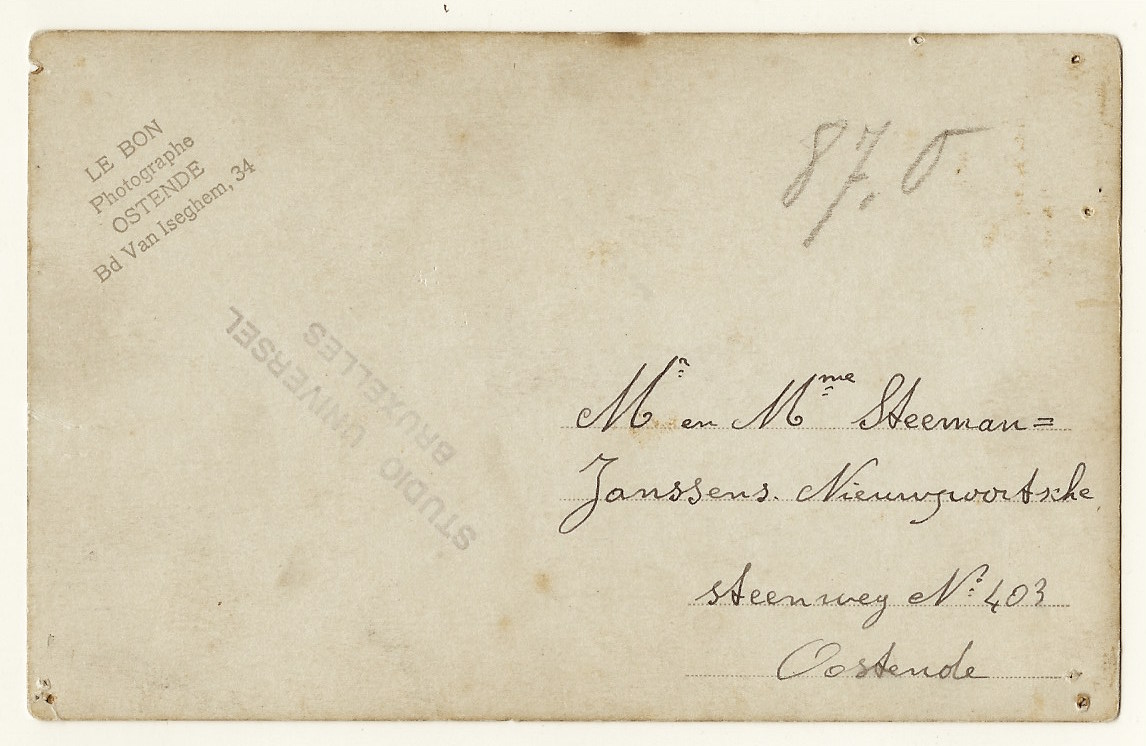 LE BON
Photographe
OSTENDE
Bd Van Iseghem, 34
87,0
STUDIO UNIVERSEL
BRUXELLES
Mr en Mme Steeman=
Janssens. Nieuwpoortsche
steenweg No 403
Oostende